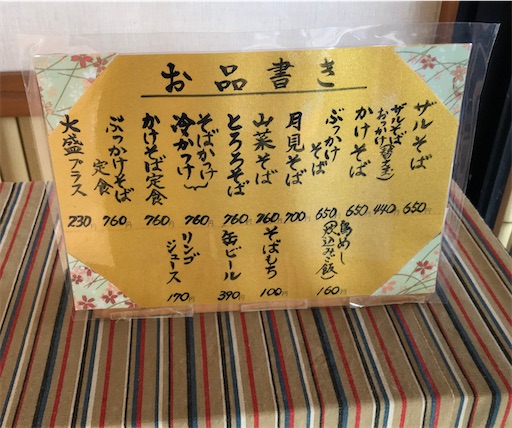 お品書き
ザルそば 650円
ザルそば
おつけ(替え玉) 440円
かけそば 650円
ぶっかけ
そば 650円
月見そば 700円
山菜そば 760円
とろろそば 760円
そばかけ
冷かつけ 760円
かけそば定食 760円
ぶっかけそば
定食 760円
大盛プラス 230円
鳥めし
(炊込みご飯) 160円
そばもち 100円
缶ビール 390円
リンゴ
ジュース 170円